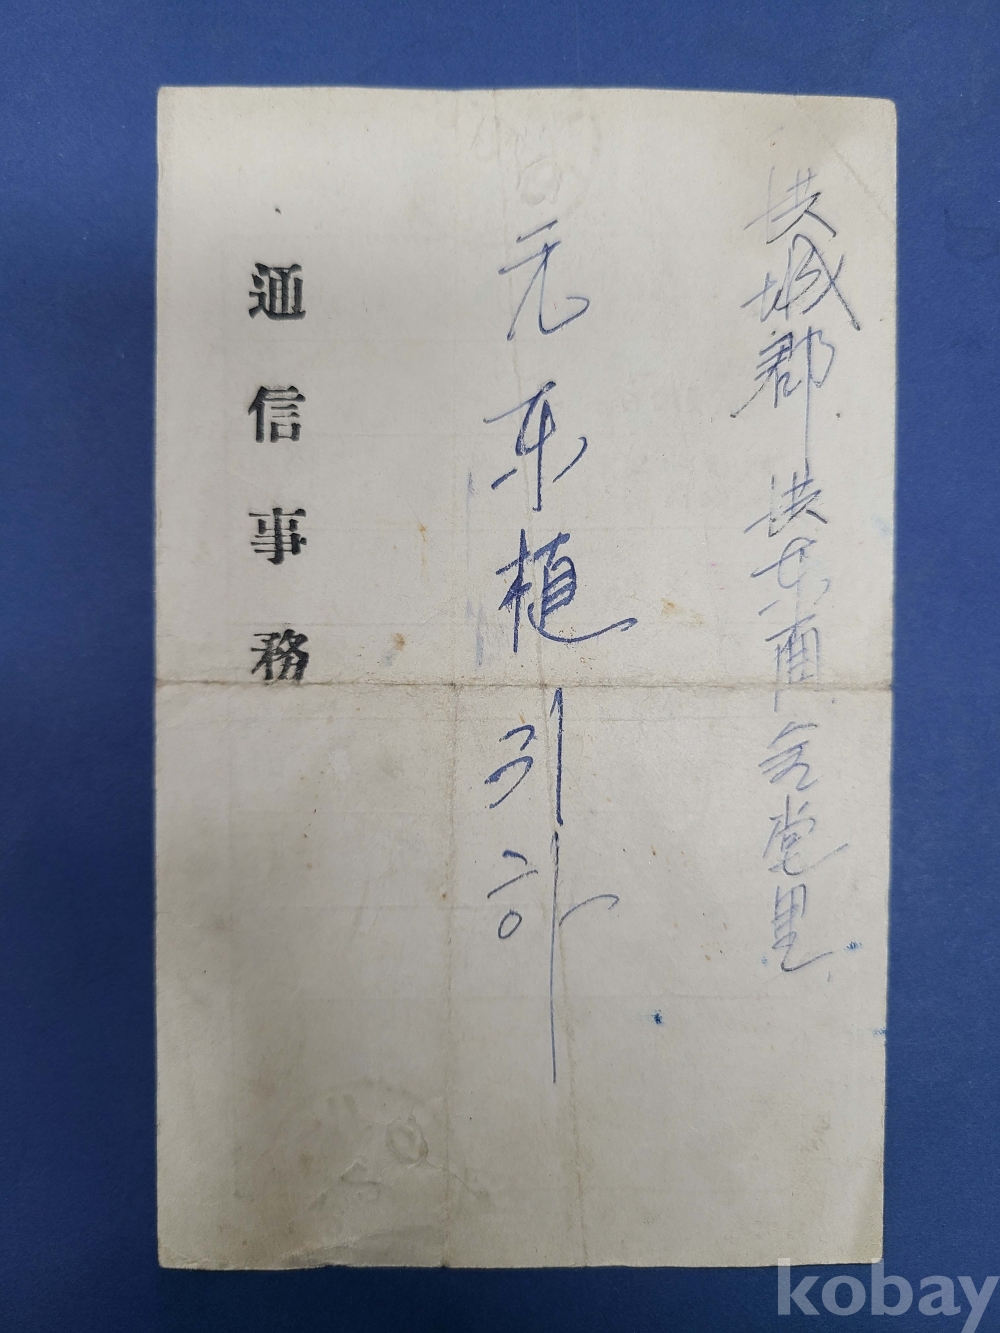 洪城郡 洪东面 金堂里
元东植 귀하
通信事務
kobay